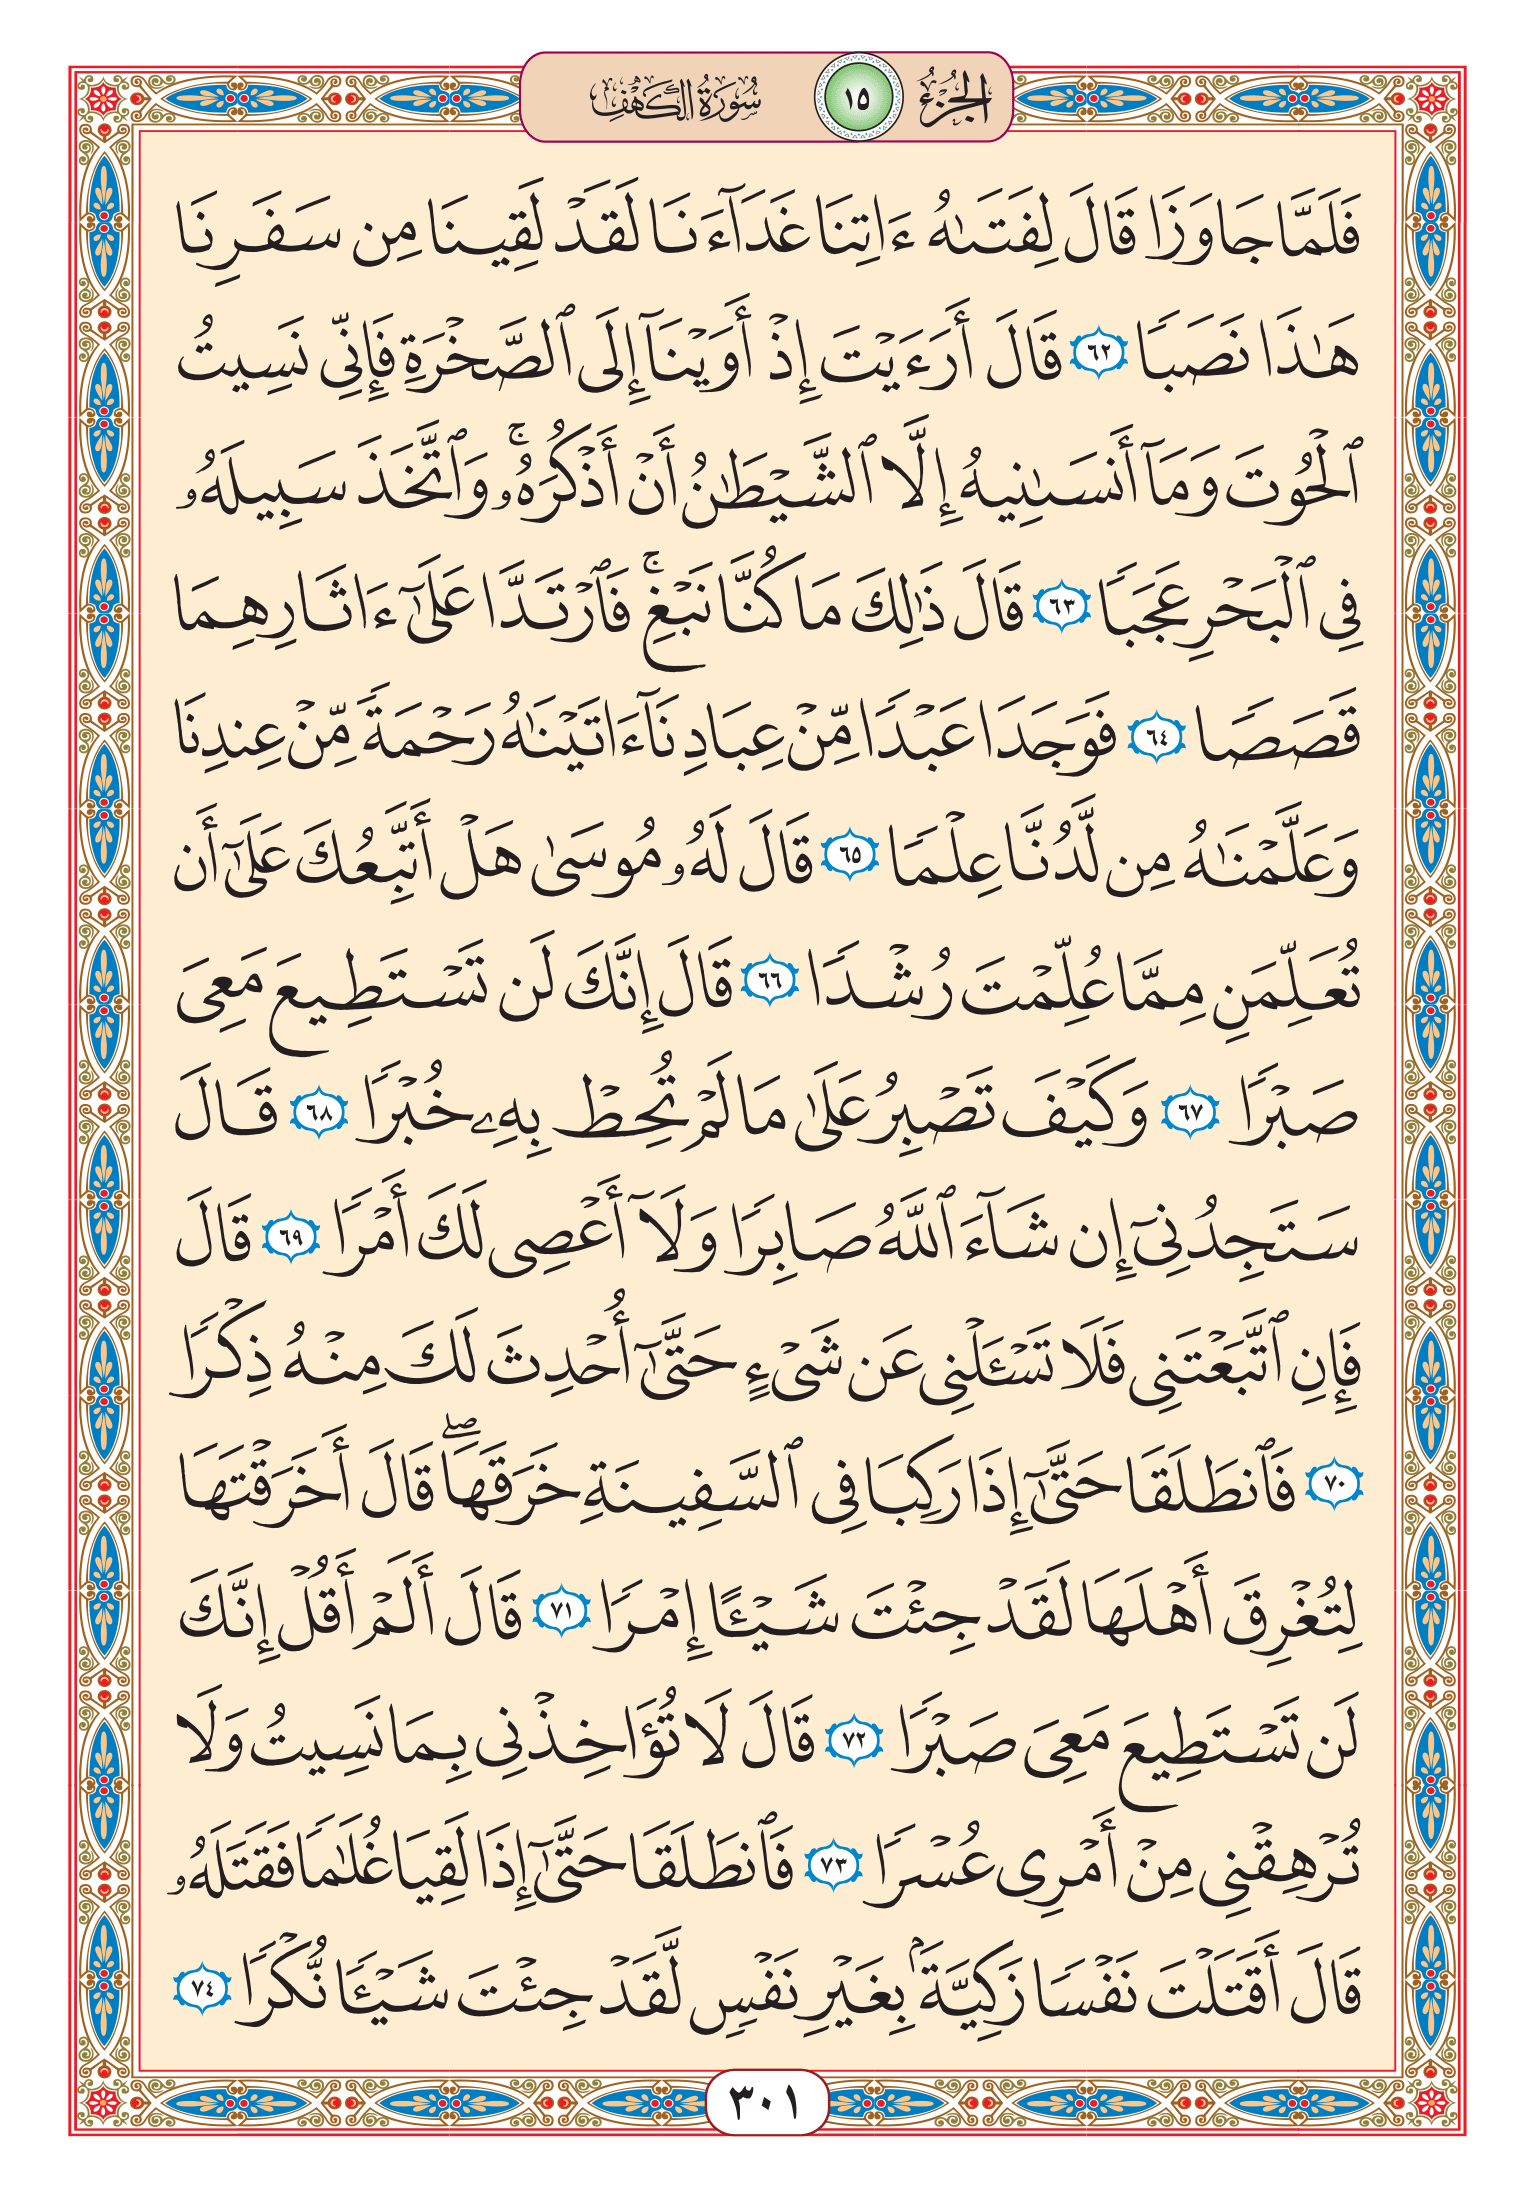 الجزء ١٥ سورة الكهف
فَلَمَّا جَاوَزَا قَالَ لِفَتَىٰهُ ءَاتِنَا غَدَآءَنَا لَقَدْ لَقِينَا مِن سَفَرِنَا
هَٰذَا نَصَبًا ٦٢ قَالَ أَرَءَيْتَ إِذْ أَوَيْنَآ إِلَى ٱلصَّخْرَةِ فَإِنِّي نَسِيتُ
ٱلْحُوتَ وَمَآ أَنسَىٰنِيهُ إِلَّا ٱلشَّيْطَٰنُ أَنْ أَذْكُرَهُۥۚ وَٱتَّخَذَ سَبِيلَهُۥ
فِي ٱلْبَحْرِ عَجَبًا ٦٣ قَالَ ذَٰلِكَ مَا كُنَّا نَبْغِۚ فَٱرْتَدَّا عَلَىٰٓ ءَاثَارِهِمَا
قَصَصًا ٦٤ فَوَجَدَا عَبْدًا مِّنْ عِبَادِنَآ ءَاتَيْنَٰهُ رَحْمَةً مِّنْ عِندِنَا
وَعَلَّمْنَٰهُ مِن لَّدُنَّا عِلْمًا ٦٥ قَالَ لَهُۥ مُوسَىٰ هَلْ أَتَّبِعُكَ عَلَىٰٓ أَن
تُعَلِّمَنِ مِمَّا عُلِّمْتَ رُشْدًا ٦٦ قَالَ إِنَّكَ لَن تَسْتَطِيعَ مَعِيَ
صَبْرًا ٦٧ وَكَيْفَ تَصْبِرُ عَلَىٰ مَا لَمْ تُحِطْ بِهِۦ خُبْرًا ٦٨ قَالَ
سَتَجِدُنِيٓ إِن شَآءَ ٱللَّهُ صَابِرًا وَلَآ أَعْصِي لَكَ أَمْرًا ٦٩ قَالَ
فَإِنِ ٱتَّبَعْتَنِي فَلَا تَسْـَٔلْنِي عَن شَيْءٍ حَتَّىٰٓ أُحْدِثَ لَكَ مِنْهُ ذِكْرًا
٧٠ فَٱنطَلَقَا حَتَّىٰٓ إِذَا رَكِبَا فِي ٱلسَّفِينَةِ خَرَقَهَاۖ قَالَ أَخَرَقْتَهَا
لِتُغْرِقَ أَهْلَهَا لَقَدْ جِئْتَ شَيْـًٔا إِمْرًا ٧١ قَالَ أَلَمْ أَقُلْ إِنَّكَ
لَن تَسْتَطِيعَ مَعِيَ صَبْرًا ٧٢ قَالَ لَا تُؤَاخِذْنِي بِمَا نَسِيتُ وَلَا
تُرْهِقْنِي مِنْ أَمْرِي عُسْرًا ٧٣ فَٱنطَلَقَا حَتَّىٰٓ إِذَا لَقِيَا غُلَٰمًا فَقَتَلَهُۥ
قَالَ أَقَتَلْتَ نَفْسًا زَكِيَّةًۢ بِغَيْرِ نَفْسٍ لَّقَدْ جِئْتَ شَيْـًٔا نُّكْرًا ٧٤
٣٠١